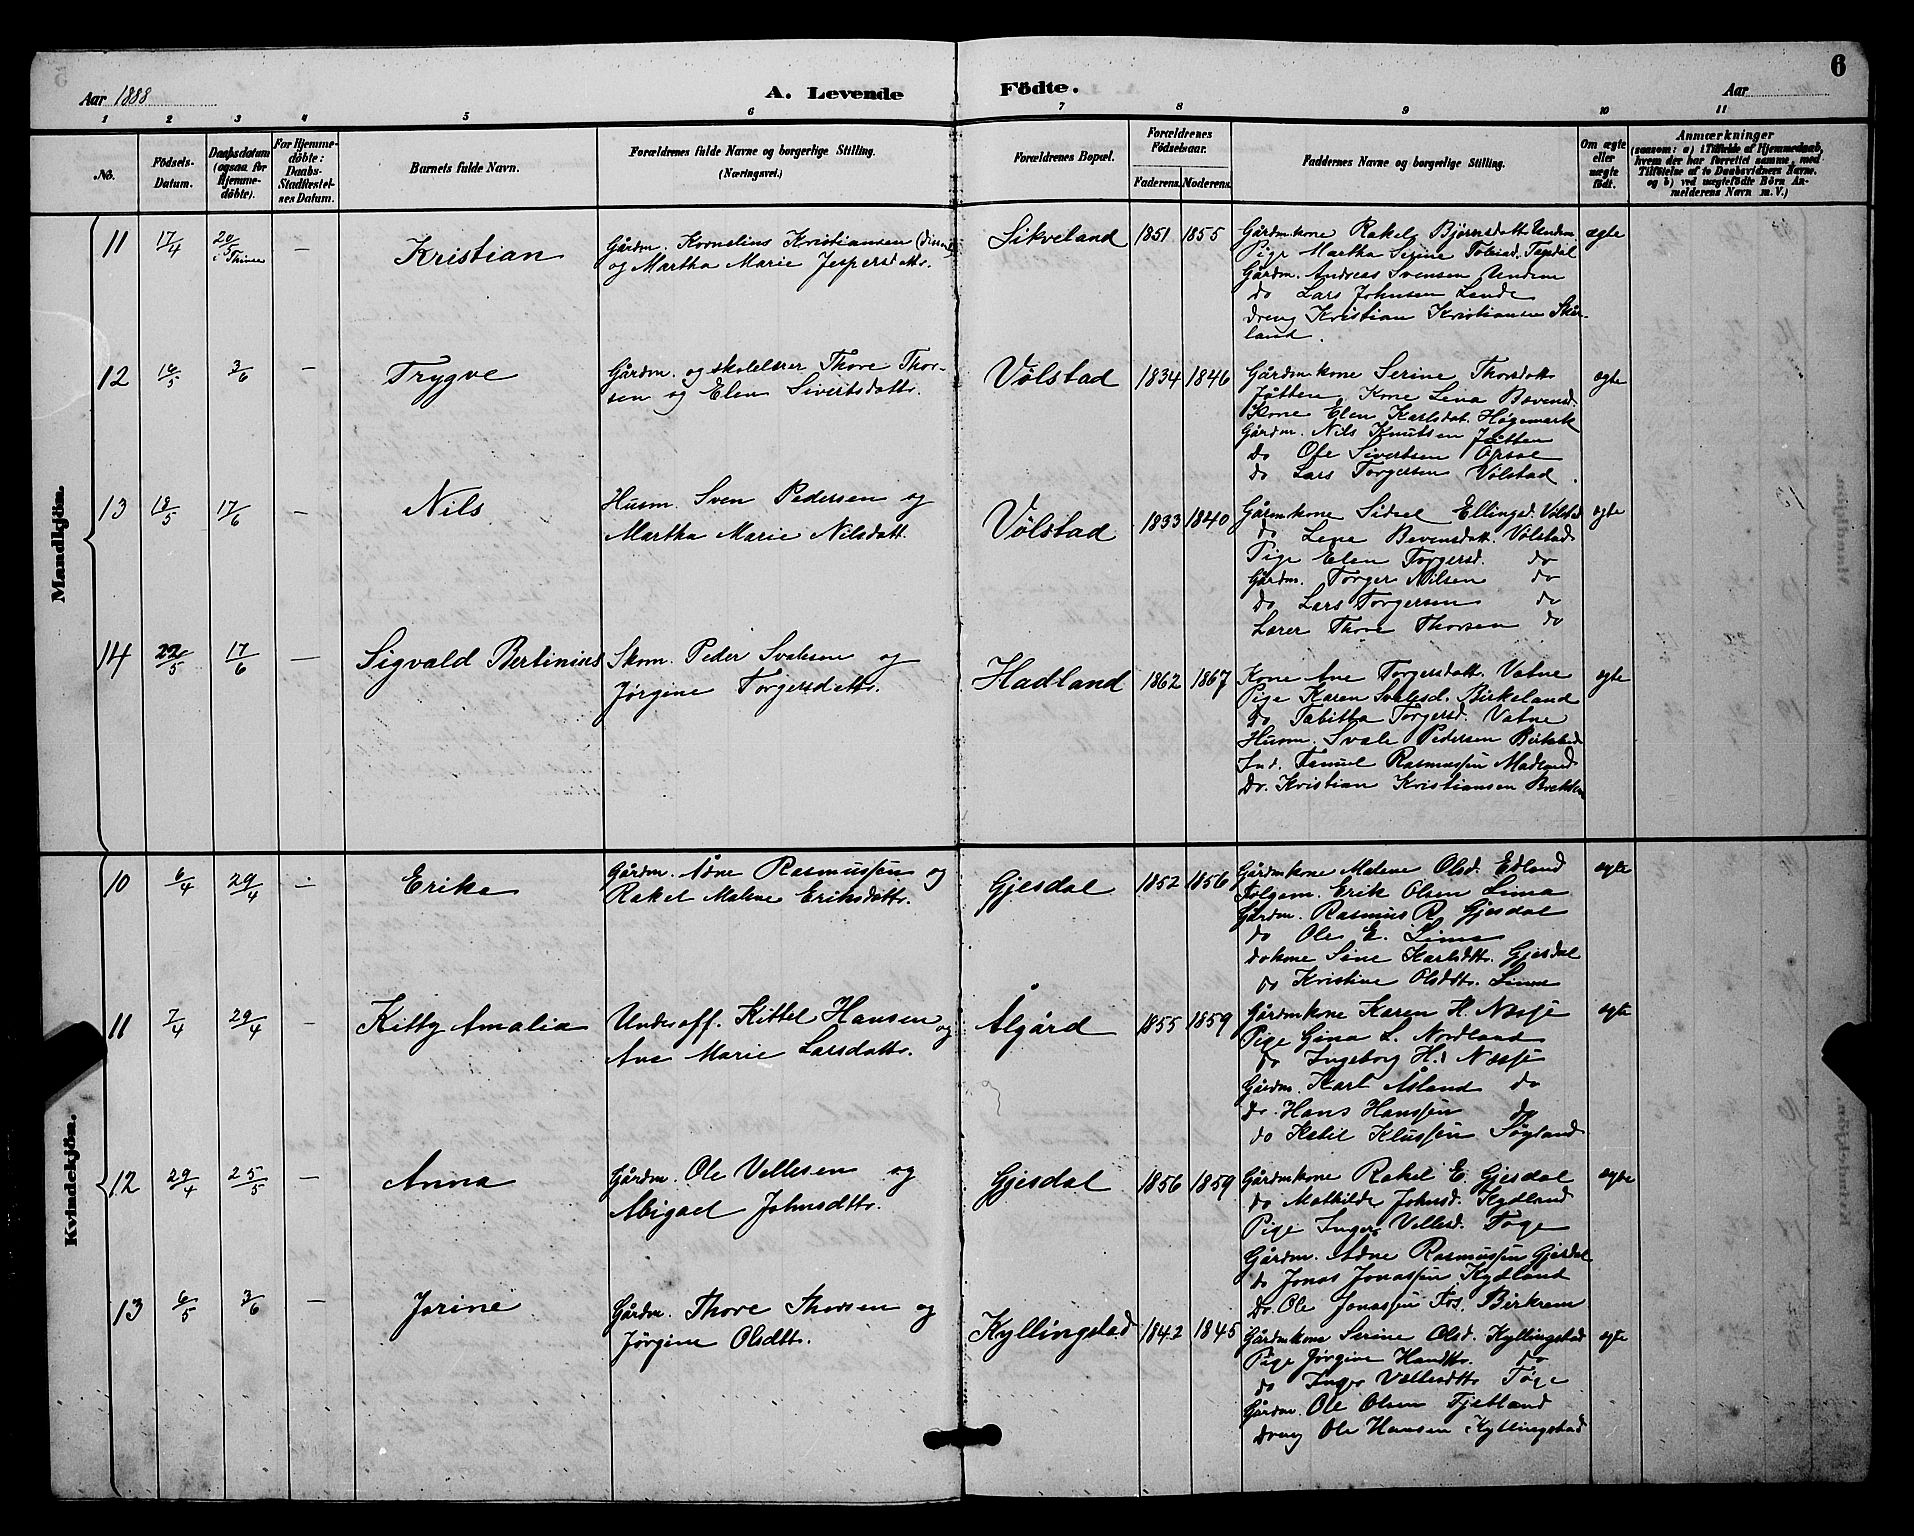 Aar 1888
A. Levende Födte.
Aar
6
1 2 3 4 5 6 7 8 9 10 11
No.
Födsels-Datum.
Daabsdatum (ogsaa for Hjemmedöbte).
For Hjemmedöbte: Daabs-Stadfæstelses Datum.
Barnets fulde Navn.
Forældrenes fulde Navne og borgerlige Stilling. (Næringsvei.)
Forældrenes Bopæl.
Forældrenes Födselsaar.
Faderens. Moderens.
Faddernes Navne og borgerlige Stilling.
Om ægte eller uægte födt.
Anmærkninger
(saasom: a) i Tilfælde af Hjemmedaab, hvem der har forrettet samme, med Tilföielse af to Daabsvidners Navne, og b) ved uægtefödte Börn Anmelderens Navn m. V.)
Mandkjön.
11 17/4 20/5 i Thime — Kristian
Gårdm. Kornelius Kristiansen
og Martha Marie Jespersdattr.
Sikveland 1851 1855
Gårdmkone Rakel Bjørnsdattr. Undem ægte
Pige Martha Serine Tobiasd. Tagdal
Gårdm. Andreas Svensen Undem
do Lars Johnsen Lende
dreng Kristian Kristiansen Skår-
land.
12 16/5 3/6 — Trygve
Gårdm. og skolelærer Thore Thor-
sen og Elen Sivertsdattr.
Vølstad 1834 1846
Gårdmkone Serine Thorsdattr. ægte
Jåtten, Kone Lena Bævensd.
Kone Elen Karlsdat. Høgemark
Gårdm. Nils Knutsen Jåtten
do Ole Sivertsen Opsal
do Lars Torgersen Vølstad.
13 18/5 17/6 — Nils
Husm. Sven Pedersen og
Martha Marie Nilsdatt.
Vølstad 1833 1840
Gårmkone Sidsel Ellingsd. Vølstad ægte
do Lene Bævensdatt. Vølstad
Pige Elen Torgersd. do
Gårdm. Torger Nilsen do
do Lars Torgersen do
Lærer Thore Thorsen do
14 22/5 17/6 — Sigvald Bertinius
Skom. Peder Svalesen og
Jørgine Torgersdattr.
Hadland 1862 1867
Kone Ane Torgersdatt. Vatne ægte
Pige Karen Svalesd. Birkeland
do Tabitha Torgersd. Vatne
Husm. Svale Pedersen Birkeland
Ind. Samuel Rasmussen Madland
Do. Kristian Kristiansen
Kvindekjön.
10 6/4 29/4 — Erika
Gårdm. Ådne Rasmussen og
Rakel Malene Eriksdattr.
Gjesdal 1852 1856
Gårdmkone Malene Olsd. Edland ægte
Følgem. Erik Olsen Lima
Gårdm. Rasmus R. Gjesdal
do Ole E. Lima
do kone Sine Karlsdttr. Gjesdal
do Kristine Olsdttr. Lima
11 7/4 29/4 — Kitty Amalia
Underoff. Kittel Hansen og
Ane Marie Larsdattr.
Ålgård 1855 1859
Gårdmkone Karen H. Næsje ægte
Pige Gina L. Nordland
do Ingeborg H. Næsje
Gårdm. Karl Åsland do
do. Hans Hanssen do
do Ketil Klussen Søyland
12 29/4 25/5 — Anna
Gårdm. Ole Vellesen og
Abigael Johnsdttr.
Gjesdal 1856 1859
Gårdmkone Rakel E. Gjesdal ægte
do Mathilde Johnsd. Kydland
Pige Inger Vellesd. Tøge
Gårdm. Ådne Rasmussen Gjesdal
do Jonas Jonassen Kydland
Do. Ole Jonassen Fos. Birkrem
13 6/5 3/6 — Jorine
Gårdm. Thore Thorsen og
Jørgine Olsdttr.
Kyllingstad 1842 1845
Gårdmkone Serine Olsd. Kyllingstad ægte
Pige Jørgine Hansdttr. do
do Inger Vellesdttr. Tøge
Gårdm. Ole Olsen Fjetland
Dreng Ole Hansen Kyllingstad